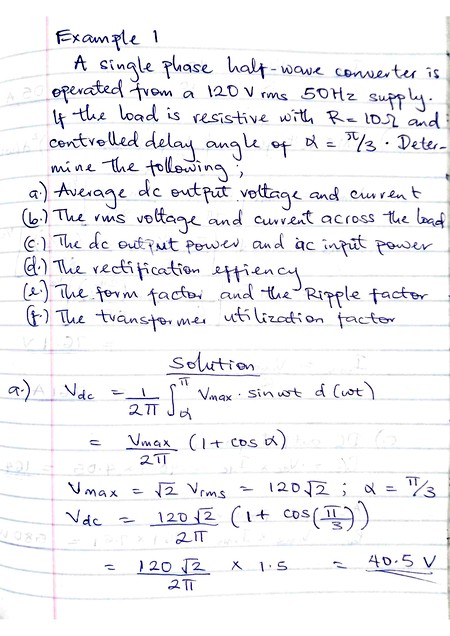 Example 1
A single phase half-wave converter is
operated from a 120 V rms 50Hz supply.
If the load is resistive with R = 10Ω and
controlled delay angle of α = π/3 . Deter-
mine the following ;
a.) Average dc output voltage and current
(b.) The rms voltage and current across the load
(c.) The dc output power and ac input power
(d.) The rectification effiency
(e.) The form factor and the Ripple factor
(f.) The transformer utilization factor
Solution
a.) Vdc = 1/2π ∫_α^π Vmax · sin wt d (wt)
= Vmax/2π (1 + cos α)
Vmax = √2 Vrms = 120√2 ; α = π/3
Vdc = 120√2/2π (1 + cos(π/3))
= 120√2/2π × 1.5 = 40.5 V